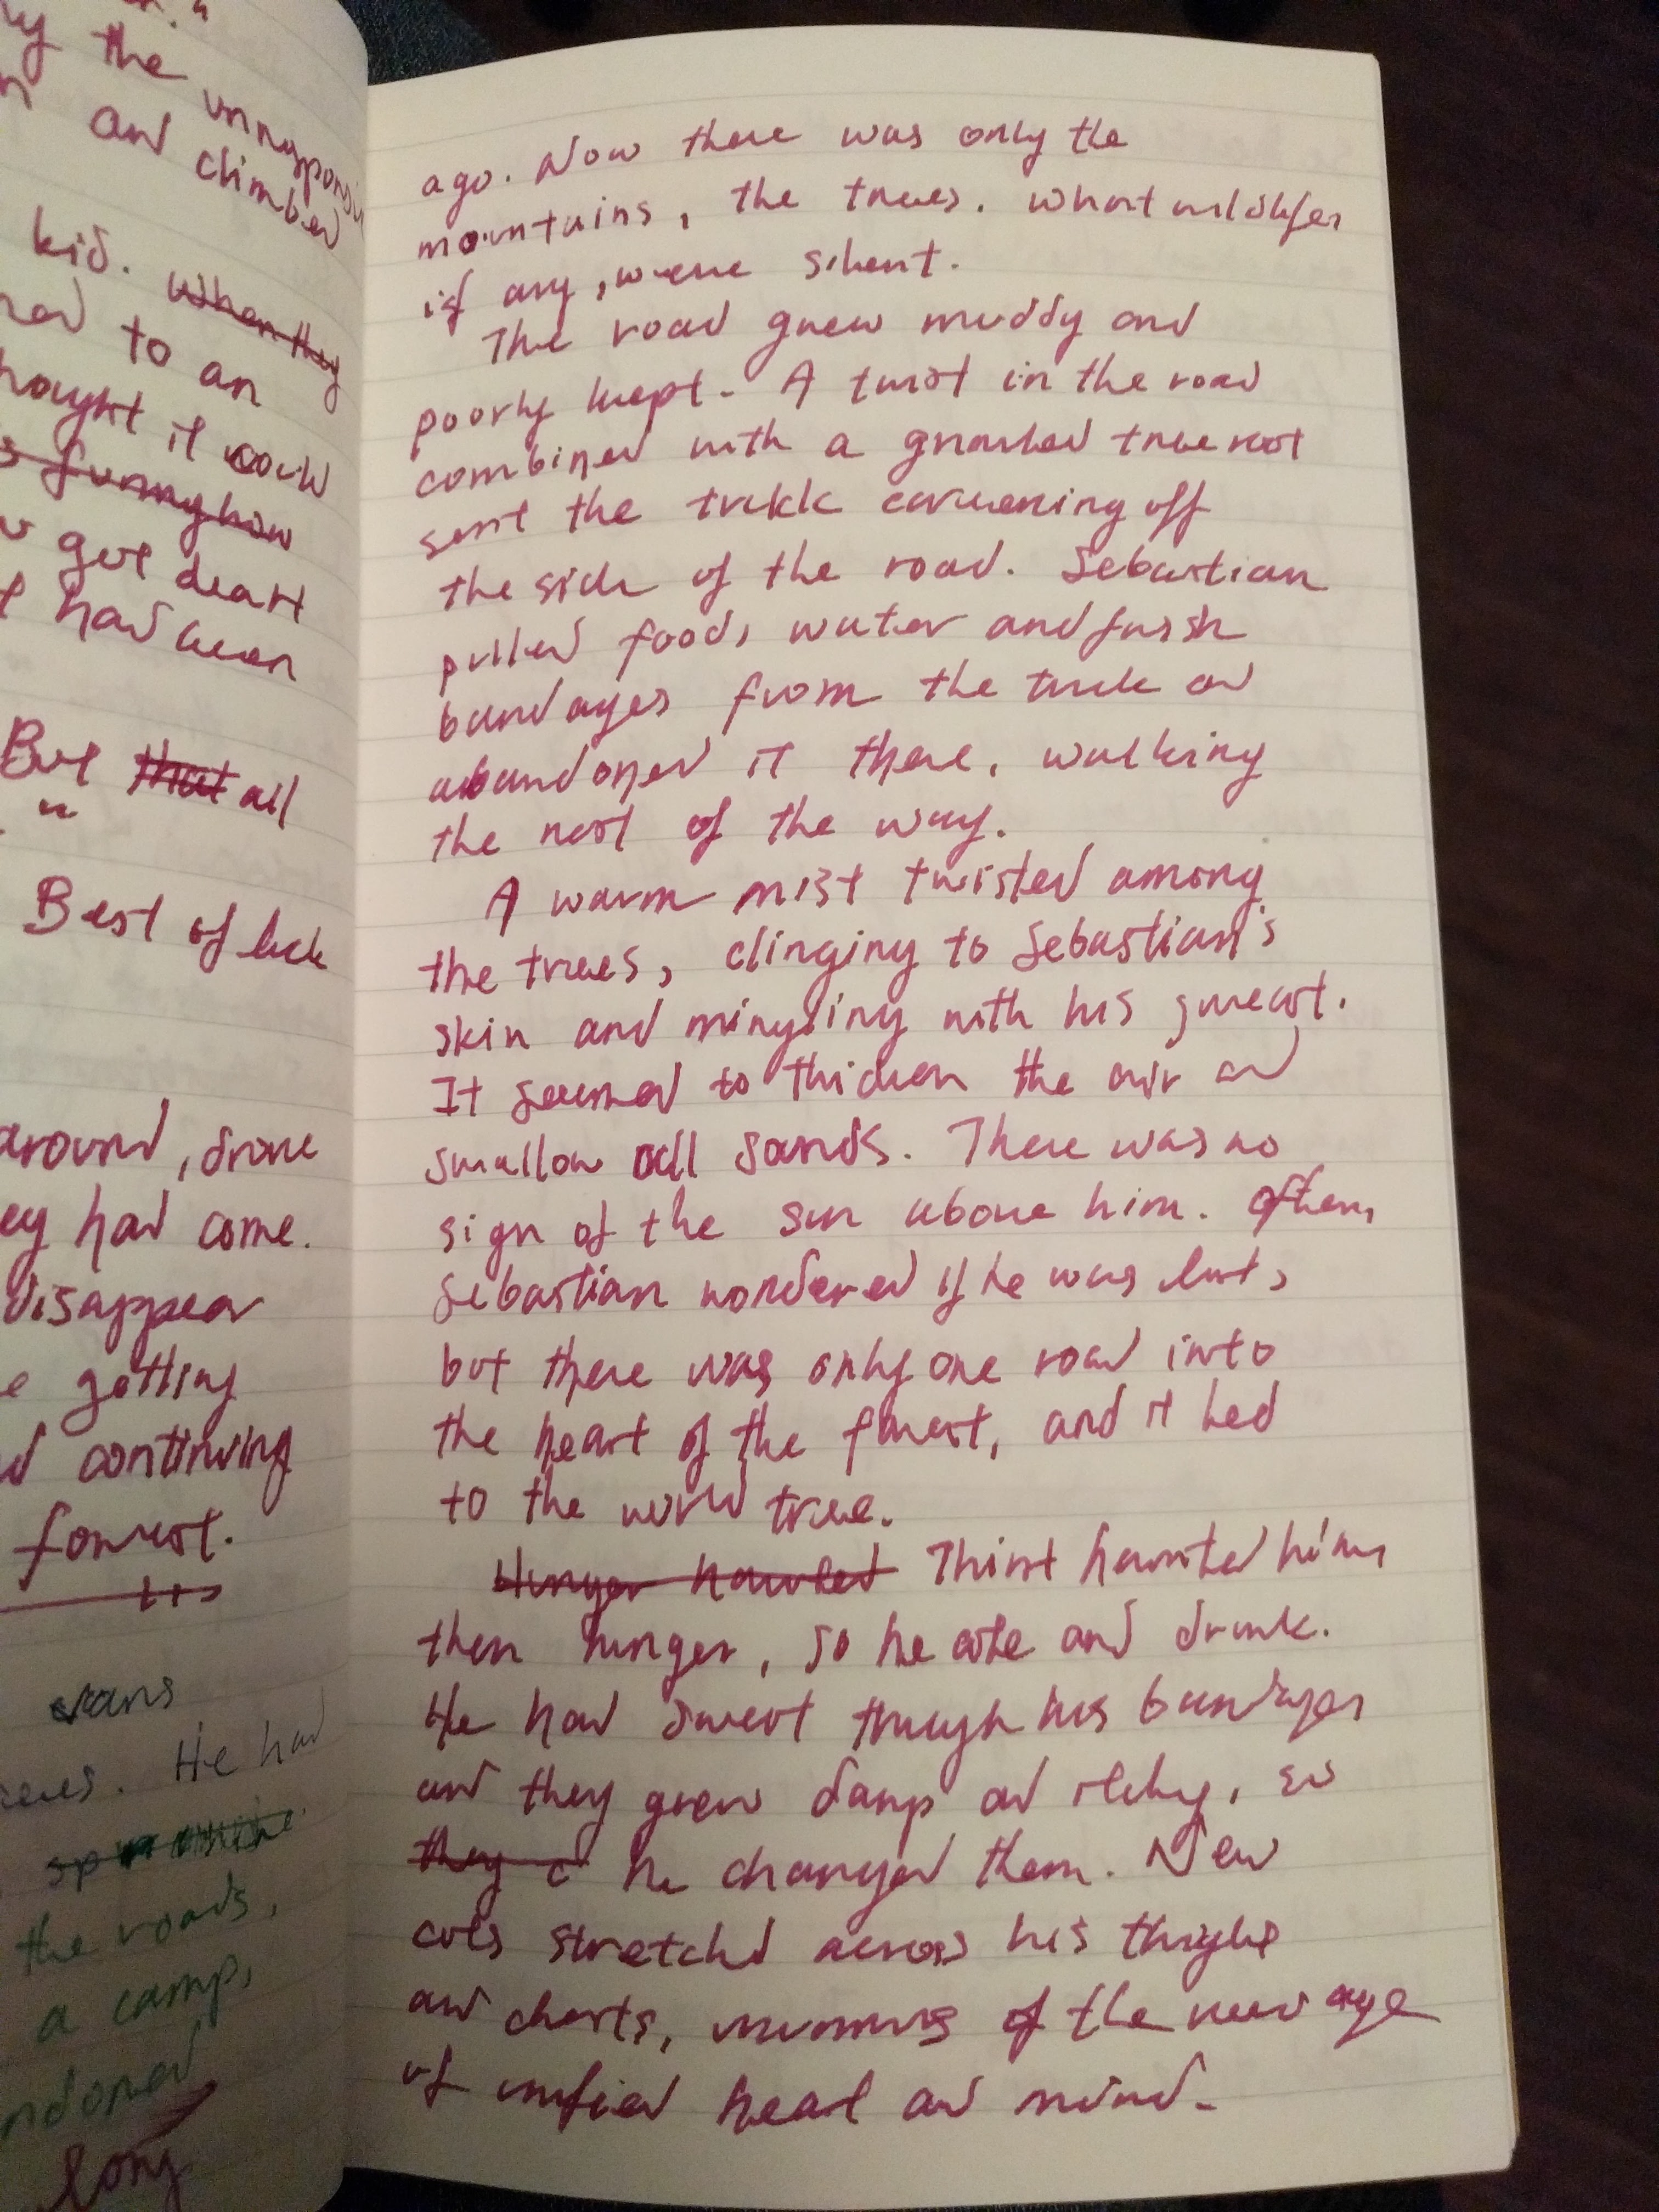 the
and climbed
kid. When they
to an
it could
funny how
get
had been
But that all
Best of luck
around, drove
had come.
disappear
getting
continuing
forrest.
He had
the roads,
a camp,
long
ago. Now there was only the
mountains, the trees. What wildlife,
if any, were silent.
The road grew muddy and
poorly kept. A twist in the road
combined with a gnarled tree root
sent the truck careening off
the side of the road. Sebastian
pulled food, water and fresh
bandages from the truck and
abandoned it there, walking
the rest of the way.
A warm mist twisted among
the trees, clinging to Sebastian's
skin and mingling with his sweat.
It seemed to thicken the air and
swallow all sounds. There was no
sign of the sun above him. Often,
Sebastian wondered if he was lost,
but there was only one road into
the heart of the forest, and it led
to the world tree.
Hunger haunted Thirst haunted him,
then hunger, so he ate and drank.
He had sweat through his bandages
and they grew damp and itchy, so
they c he changed them. New
cuts stretched across his thighs
and chests, of the new age
of unified heart and mind.